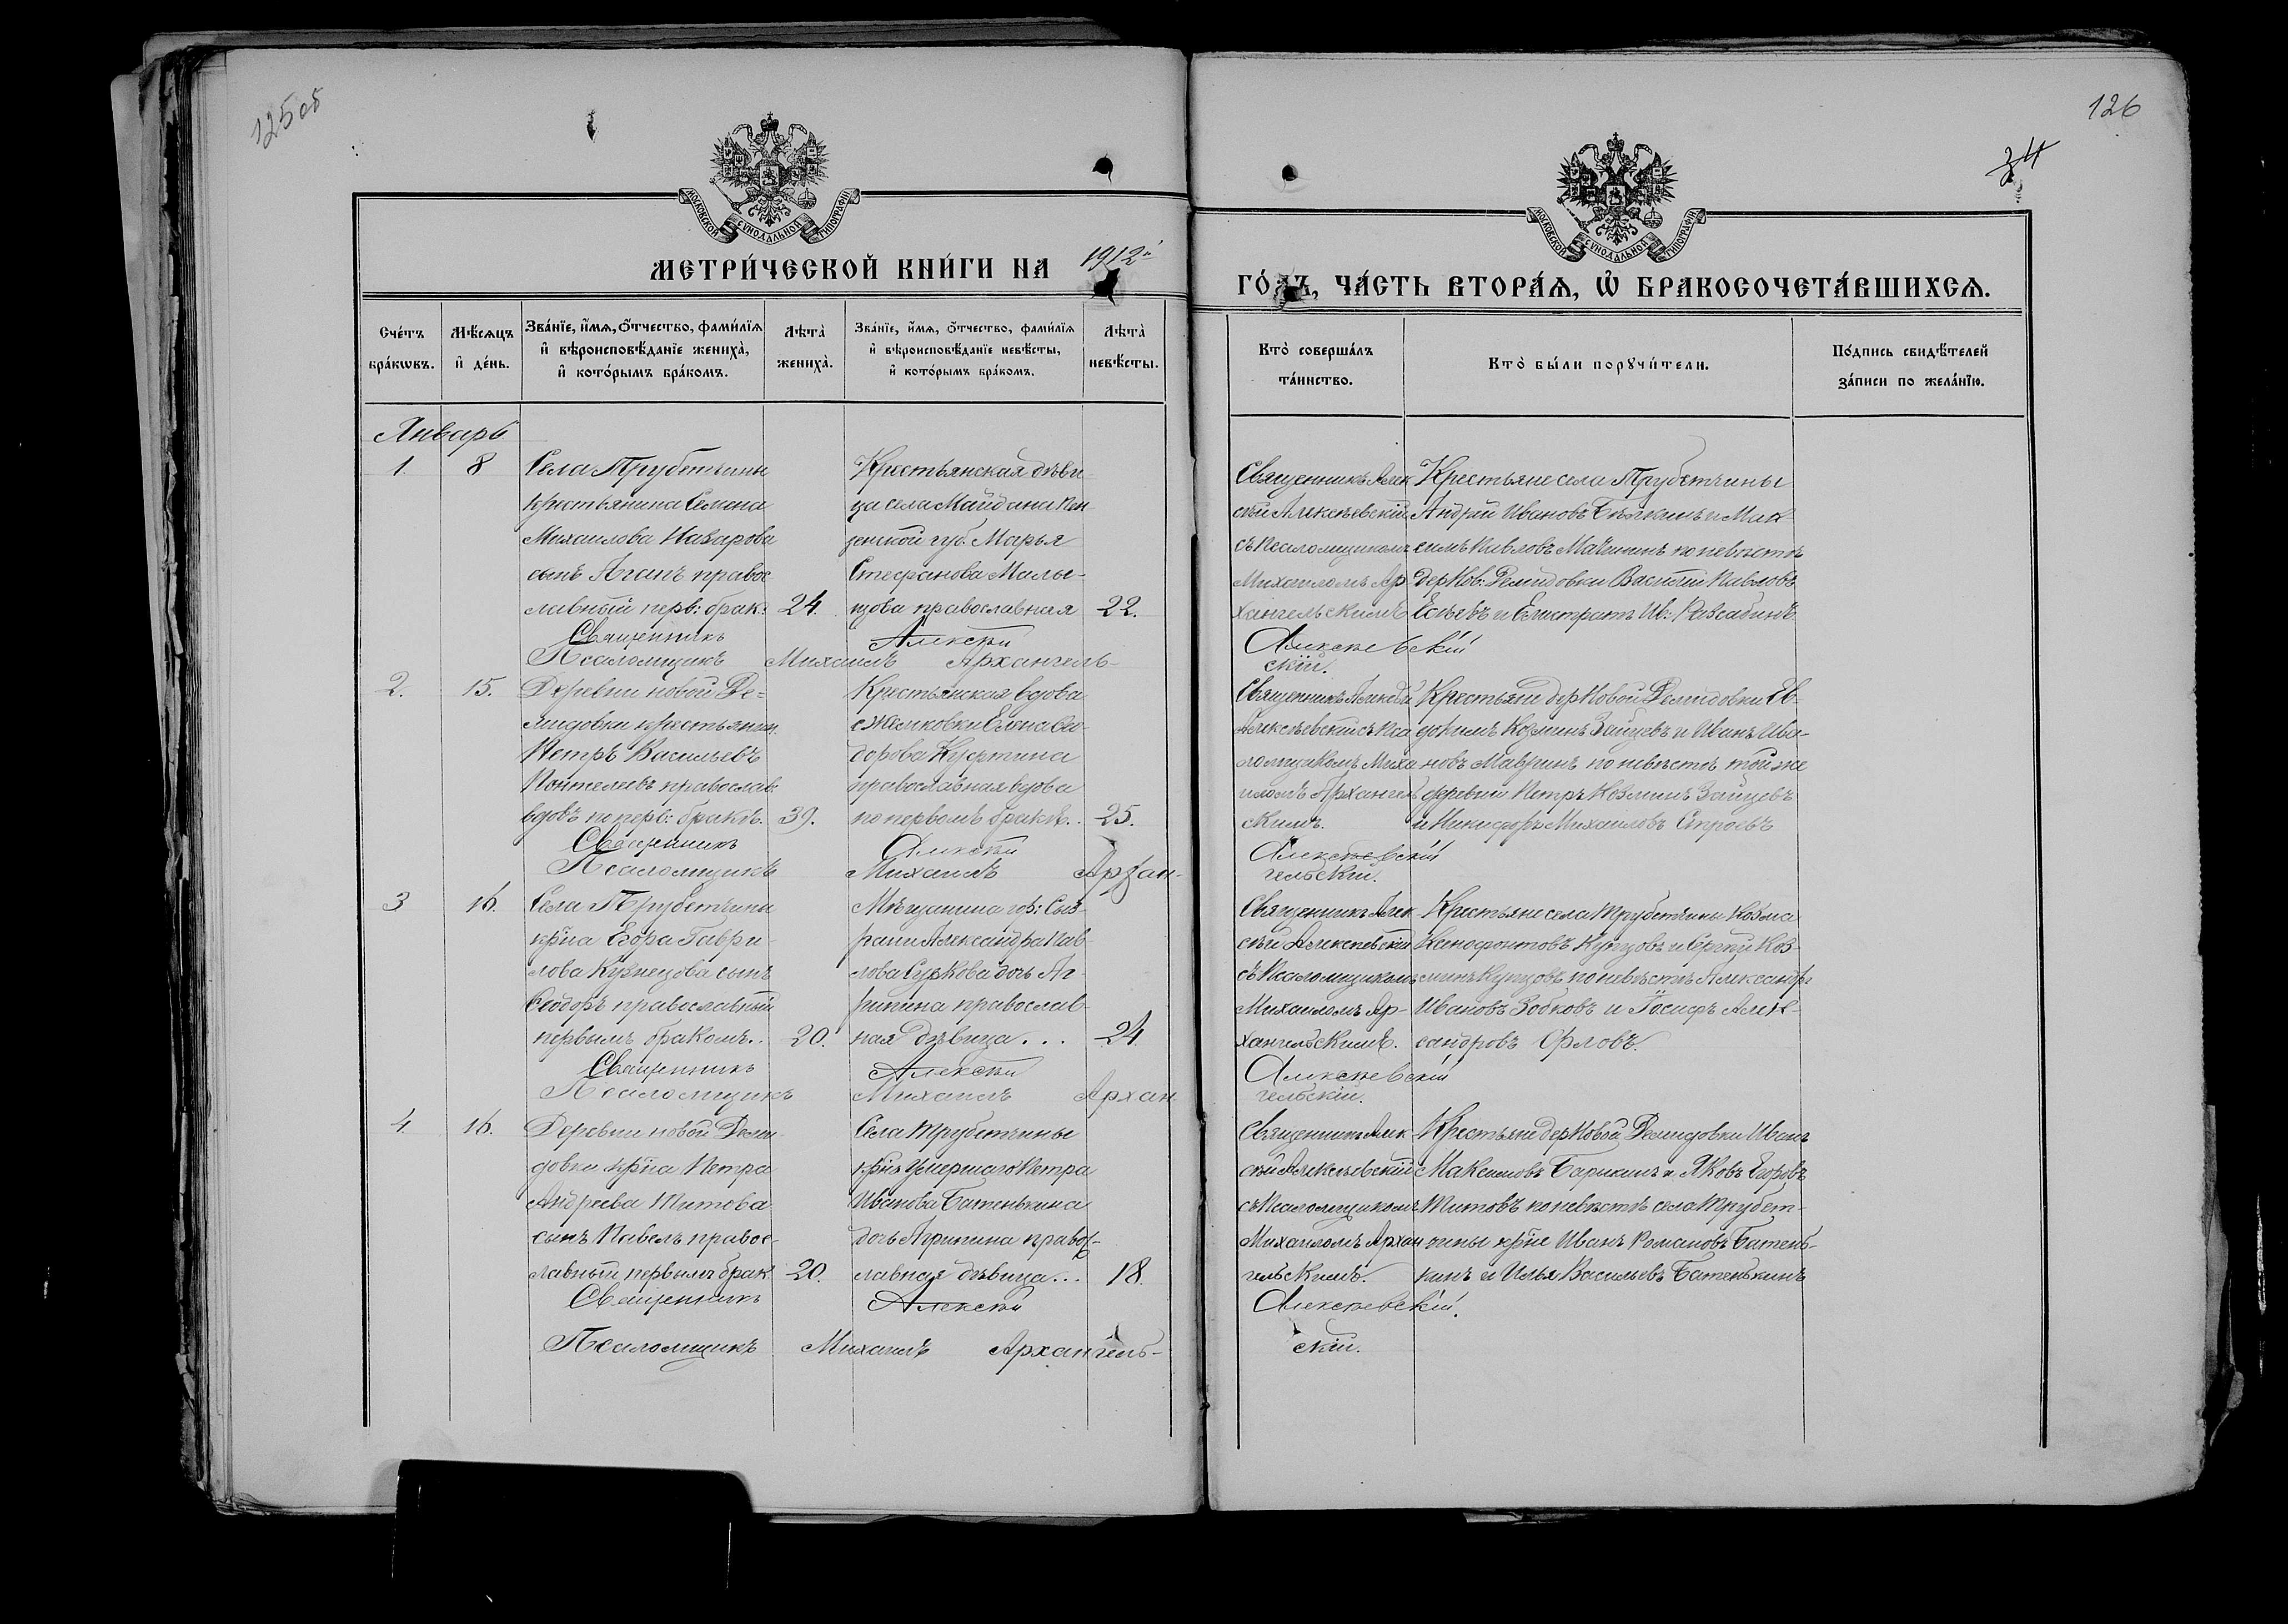 125 об
126
34
МОСКОВСКОЙ СУНОДАЛЬНОЙ ТИПОГРАФІИ
МОСКОВСКОЙ СУНОДАЛЬНОЙ ТИПОГРАФІИ
МЕТРИ́ЧЕСКОЙ КНИ́ГИ НА 1912й
ГО́ДЪ, ЧА́СТЬ ВТОРА́Ѧ, Ѿ БРАКОСОЧЕТА́ВШИХСѦ.
Сче́тъ бра́кѡвъ.
Мѣ́сѧцъ и҆ де́нь.
Зва́нїе, и҆́мѧ, ѻ҆́тчество, фами́лїѧ
и҆ вѣроисповѣ́данїе жениха̀,
и҆ кото́рымъ бра́комъ.
Лѣта̀ жениха̀.
Зва́нїе, и҆́мѧ, ѻ҆́тчество, фами́лїѧ
и҆ вѣроисповѣ́данїе невѣ́сты,
и҆ кото́рымъ бра́комъ.
Лѣта̀ невѣ́сты.
Кто̀ соверша́лъ та́инство.
Кто̀ бы́ли порꙋчи́тели.
По́дпись свидѣ́телей
за́писи по жела́нїю.
Январь
1.
8
Села Трубетчины
крестьянина Семена
Михаилова Назарова
сынъ Аѳанъ правос
лавный перв: брак:
24.
Крестьянская дѣви-
ца села Майдана Пен
зенской губ. Марья
Стефанова Малы-
цова православная
22.
Священникъ Алек
сѣй Алексѣевскій
съ Псаломщикомъ
Михаиломъ Ар
хангельскимъ
Крестьяне села Трубетчины
Андрей Ивановъ и Мак-
симъ Павловъ по невѣстѣ
дер Нов. Демидовки Василій Павловъ
и Елистратъ Ив:
Священникъ Алексѣй Алексѣевскій
Псаломщикъ Михаилъ Архангель-
скій.
2.
15.
Деревни новой Де-
мидовки крестьянин.
Петръ Васильевъ
Понтелевъ православ.
вдовъ по перв: бракѣ.
39.
Крестьянская вдова
Елена Си-
дорова
православная вдова
по первомъ бракѣ..
25.
Священникъ Алексѣй
Алексѣевскій съ Пса
ломщикомъ Миха
иломъ Архангель
скимъ.
Крестьяне дер Новой Демидовки Ев-
докимъ Козминъ Зайцевъ и Иванъ Ива-
новъ Мавринъ по невѣстѣ той же
деревни Петръ Козминъ Зайцевъ
и Никифоръ Михаиловъ Строевъ
Священникъ Алексѣй Алексѣевскій
Псаломщикъ Михаилъ Архан-
гельскій.
3
16.
Села Трубетчины
кр͠на Егора Гаври-
лова Кузнецова сынъ
Ѳеодоръ православный
первымъ бракомъ..
20.
Мѣщанина гор: Сыз-
рани Александра Пав-
лова Суркова дочь Аг-
рипина православ-
ная дѣвица...
24
Священникъ Алек
сѣй Алексѣевскій
съ Псаломщикомъ
Михаиломъ Ар-
хангельскимъ.
Крестьяне села Трубетчины Козма
Ксенофонтовъ Купцовъ и Сергѣй Коз-
минъ Купцовъ по невѣстѣ Александръ
Ивановъ Зобковъ и Іосифъ Алек-
сандровъ Орловъ.
Священникъ Алексѣй Алексѣевскій
Псаломщикъ Михаилъ Архан
гельскій.
4.
16.
Деревни новой Деми-
довки кр͠на Петра
Андреева Титова
сынъ Павелъ правос-
лавный первымъ брак.
20.
Села Трубетчины
кр͠на умершаго Петра
Иванова Батенькина
дочь Агрипина правос-
лавная дѣвица...
18.
Священникъ Алек
сѣй Алексѣевскій
съ Псаломщикомъ
Михаиломъ Архан
гельскимъ.
Крестьяне дер Новой Демидовки Иванъ
Максимовъ Барышкинъ и Яковъ Егоровъ
Титовъ по невѣстѣ села Трубет-
чины кр͠не Иванъ Романовъ Батень-
кинъ и Илья Васильевъ Батенькинъ
Священникъ Алексѣй Алексѣевскій.
Псаломщикъ Михаилъ Архангель-
скій.